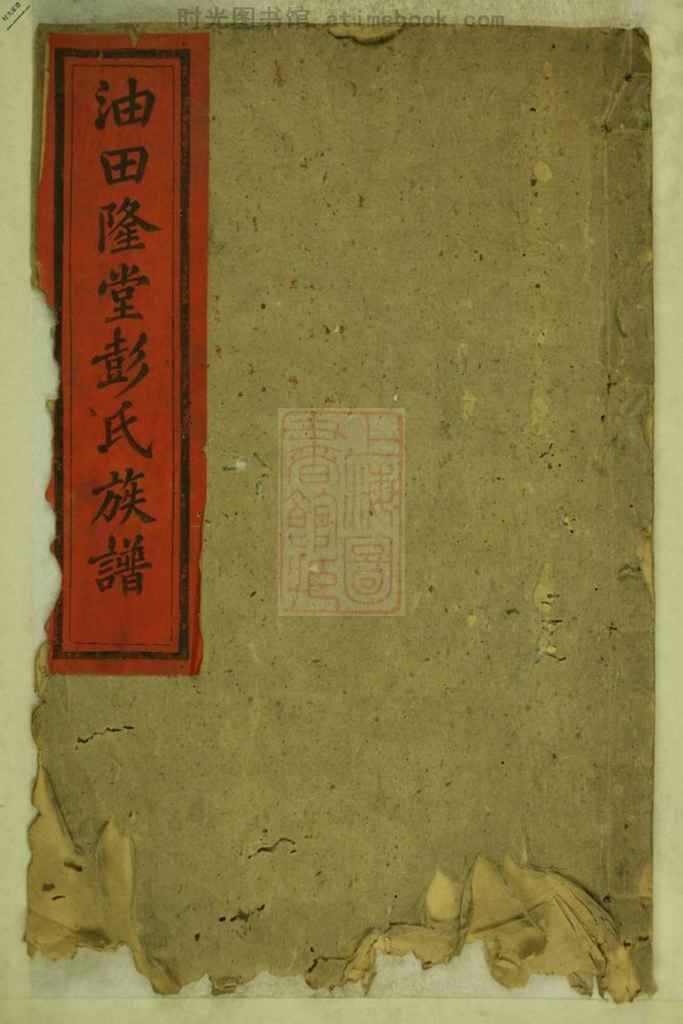 时光图书馆 atimebook.com
油田隆堂彭氏族譜
上海圖
書館藏